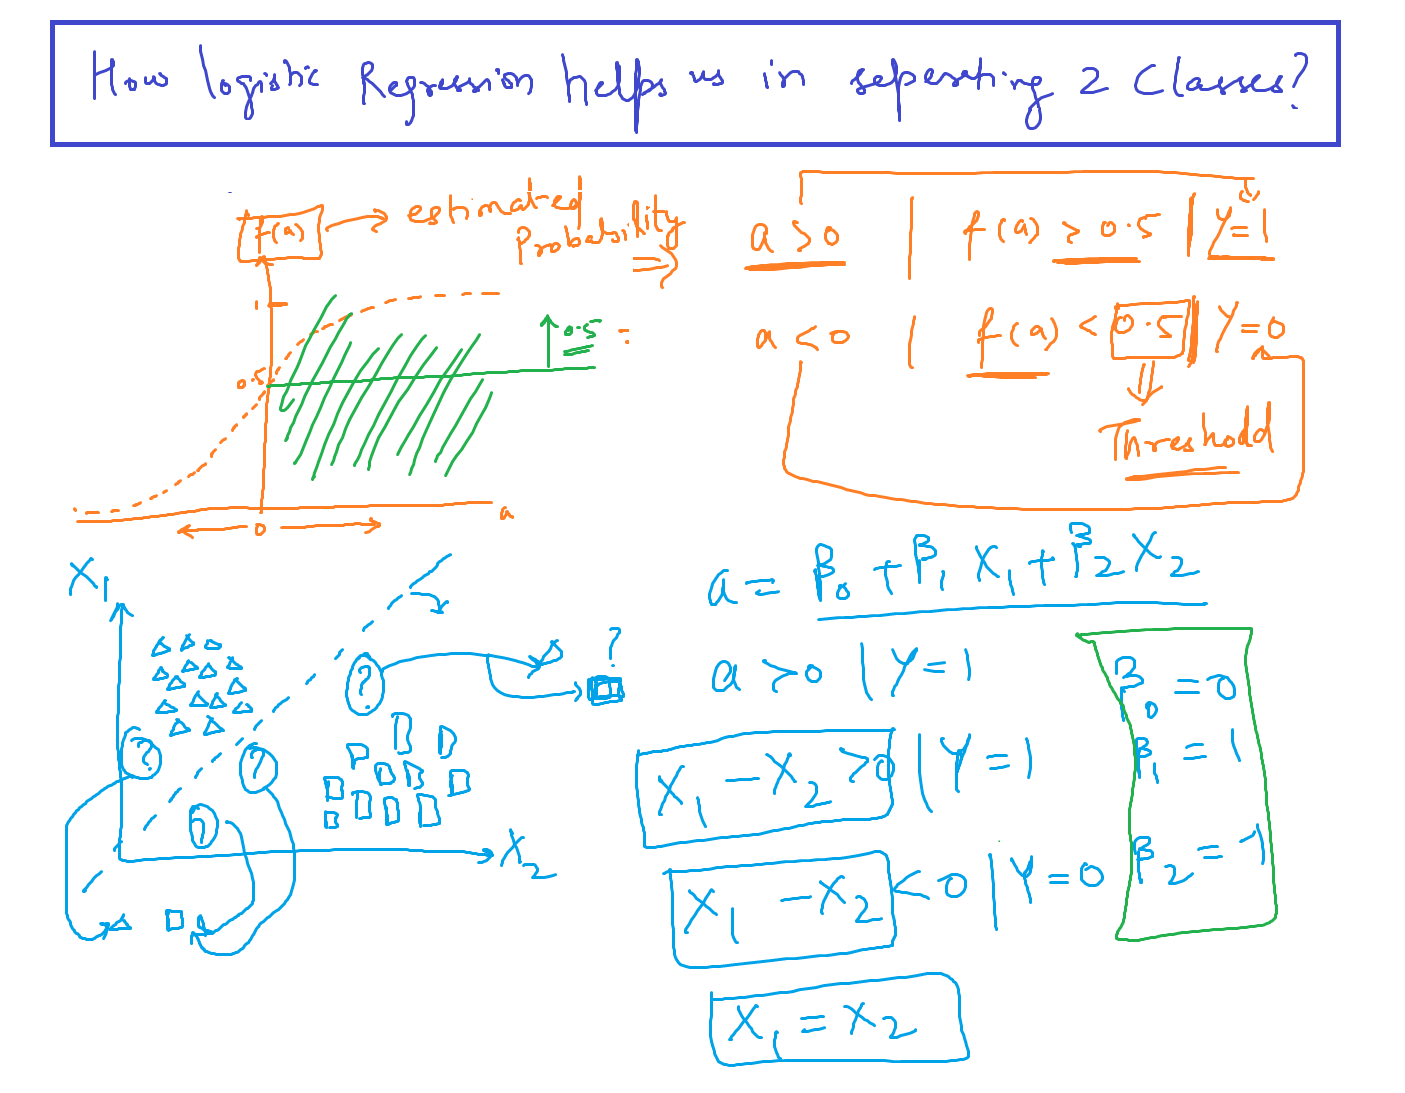 How logistic Regression helps us in seperating 2 Classes?
f(a) → estimated Probability ⇒
a > 0 | f(a) > 0.5 | Y=1
a < 0 | f(a) < 0.5 | Y=0
Threshold
1
0.5
0.5
0
a
a = β0 + β1 X1 + β2 X2
a > 0 | Y=1
X1 - X2 > 0 | Y=1
X1 - X2 < 0 | Y=0
X1 = X2
β0 = 0
β1 = 1
β2 = -1
X1
?
?
?
?
?
X2